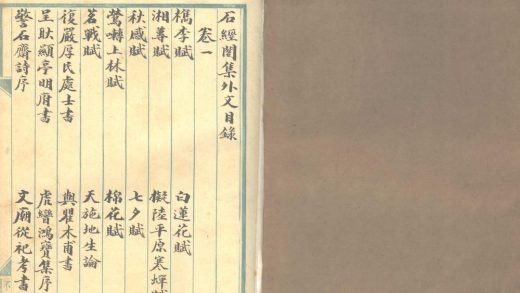 石經閣集外文目錄
卷一
檇李賦 白蓮花賦
湘尊賦 擬陸平原寒蟬賦
秋感賦 七夕賦
鶯囀上林賦 棉花賦
茗戰賦 天施地生論
復嚴厚民處士書 與瞿木甫書
呈耿顯亭明府書 虎巒鴻寶集序
警石齋詩序 文廟從祀考書